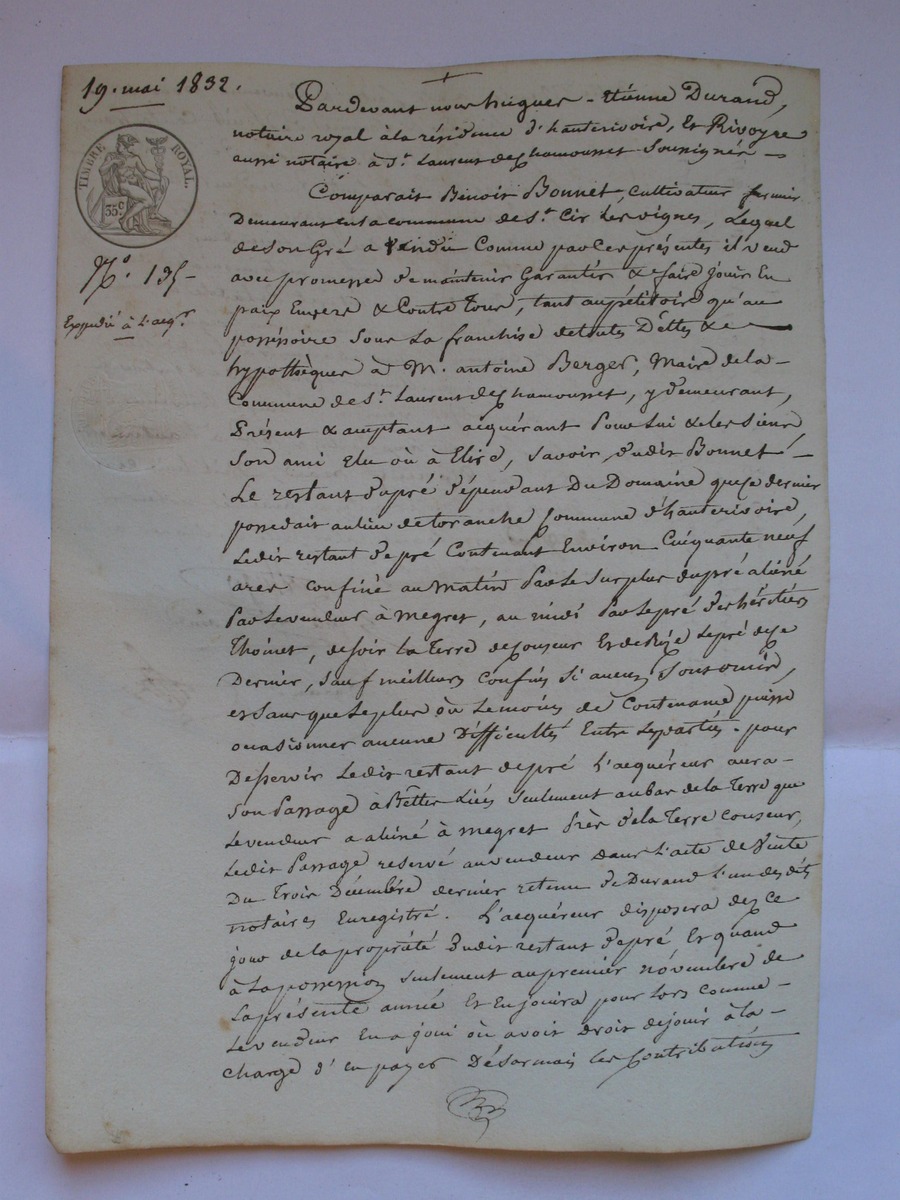 19. mai 1832.
TIMBRE ROYAL.
35c
N.o 135-
Expédié à l'acq.r
Pardevant nous hugues - Etienne Durand,
notaire royal à la résidence d'hauterivoire, Et Rivoyre
aussi notaire à St. Laurent de Chamousset Soussignés —
Comparait Benoit Bonnet, Cultivateur fermier
Demeurant en la commune de St. Cir Les vignes, Lequel
de Son Gré a Vendu Comme par Ces présentes il vend
avec promesse de maintenir Garantir & faire jouir En
paix Envers & Contre tous, tant au pétitoire qu'au
possessoire sous La franchise de toutes Dettes &
hypothèques à M. antoine Berger, Maire de la -
Commune de St. Laurent de Chamousset, y Demeurant,
Présent & acceptant acquérant Pour Lui & les Siens
Son ami Elu où à Elire, Savoir dudit Bonnet -
Le restant du pré Dépendant Du Domaine que ce dernier
possedait au lieu de toranche Commune d'hauterivoire,
Ledit restant de pré Contenant Environ Cinquante neuf
ares confiné au Matin Par Le Surplus du pré aliéné
Par Le vendeur à megret, au midi Par Le pré des héritiers
Thoinet, de soir La Terre de couseur Et de Bize Le pré de ce
Dernier, Sauf meilleurs Confins Si aucuns Sont omis,
et Sans que Le plus où Le moins de Contenance puisse
occasionner aucune Difficultés Entre Les parties. pour
Desservir Ledit restant de pré L'acquéreur aura -
Son Passage à Bêttes Liées Seulement au bas de La Terre que
Le vendeur a aliéné à megret Près de La Terre couseur,
Ledit Passage reservé au vendeur dans L'acte de Vente
Du Trois Décembre dernier retenu de Durand L'un des dits
notaires Enregistré. L'acquéreur disposera des Ce
jour de La propriété dudit restant de pré, Et quand
à La possession Seulement au premier novembre de
La présente année Et En jouira pour Lors comme -
Le vendeur En a joui où avoit Droit de jouir à La -
charge d'en payer Désormais Les Contributions